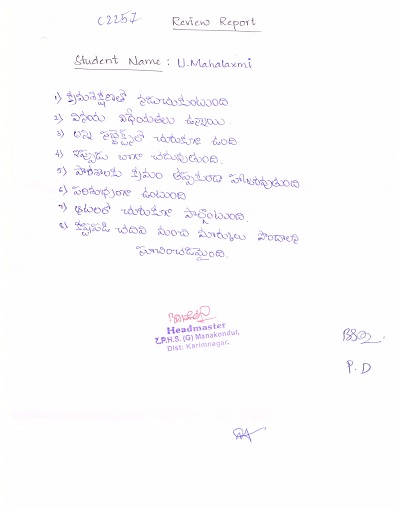 C2257
Review Report
Student Name : U.Mahalaxmi
1) క్రమశిక్షణతో నడుచుకుంటుంది
2) వినయ విధేయతలు ఉన్నాయి
3) అన్ని సబ్జెక్ట్స్‌లో చురుకుగా ఉంది
4) ఇప్పుడు బాగా చదువుతుంది.
5) పాఠశాలకు క్రమం తప్పకుండా హాజరవుతుంది
6) పరిశుభ్రంగా ఉంటుంది
7) ఆటలలో చురుకుగా పాల్గొంటుంది.
8) కష్టపడి చదివి మంచి మార్కులు పొందాలని
సూచించడమైంది.
Headmaster
Z.P.H.S. (G) Manakondur,
Dist: Karimnagar.
P.D